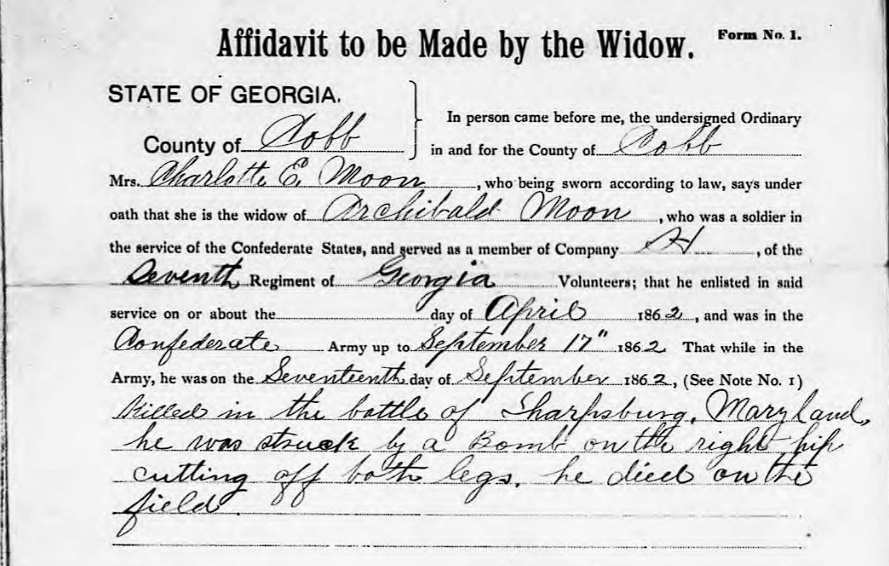 Affidavit to be Made by the Widow. Form No. 1.
STATE OF GEORGIA.
In person came before me, the undersigned Ordinary
County of Cobb in and for the County of Cobb
Mrs. Charlotte E. Moon, who being sworn according to law, says under
oath that she is the widow of Archibald Moon, who was a soldier in
the service of the Confederate States, and served as a member of Company H, of the
Seventh Regiment of Georgia Volunteers; that he enlisted in said
service on or about the day of April 1862, and was in the
Confederate Army up to September 17" 1862 That while in the
Army, he was on the Seventeenth day of September 1862, (See Note No. 1)
Killed in the battle of Sharpsburg, Maryland,
he was struck by a Bomb on the right hip
cutting off both legs. he died on the
field.